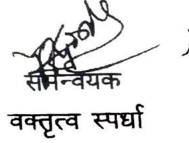 समन्वयक
वक्तृत्व स्पर्धा